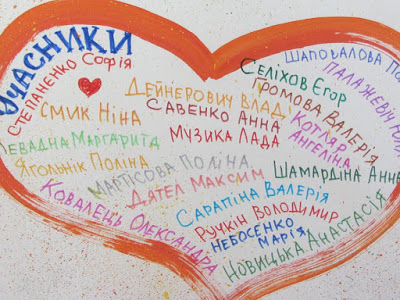 УЧАСНИКИ
СТЕПАНЕНКО СОФІЯ
СМИК НІНА
ЛЕВАДНА МАРГАРИТА
ЯГОЛЬНІК ПОЛІНА
КОВАЛЕЦЬ ОЛЕКСАНДРА
ДЕЙНЕРОВИЧ ВЛАД
САВЕНКО АННА
МУЗИКА ЛАДА
МАРТІСОВА ПОЛІНА
ДЯТЕЛ МАКСИМ
САРАПІНА ВАЛЕРІЯ
РУЧКІН ВОЛОДИМИР
НЕБОСЕНКО
МАРІЯ
НОВИЦЬКА АНАСТАСІЯ
СЕЛІХОВ ЄГОР
ГРОМОВА ВАЛЕРІЯ
КОТЛЯР
АНГЕЛІНА
ШАМАРДІНА АННА
ШАПОВАЛОВА
ПАЛАЖЕВІЧ